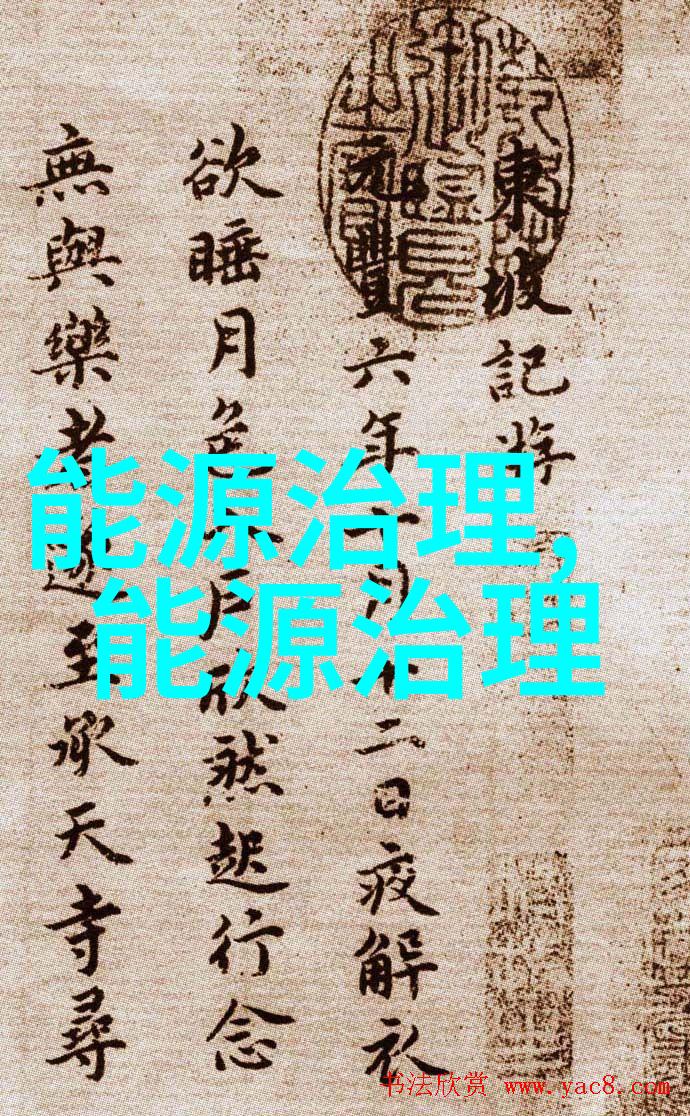 東坡記游
元豐六年十月十二日夜解衣
欲睡月色入戶欣然起行念
無與樂者遂至承天寺尋
能源治理,
能源治理
书法欣赏 www.yac8.com